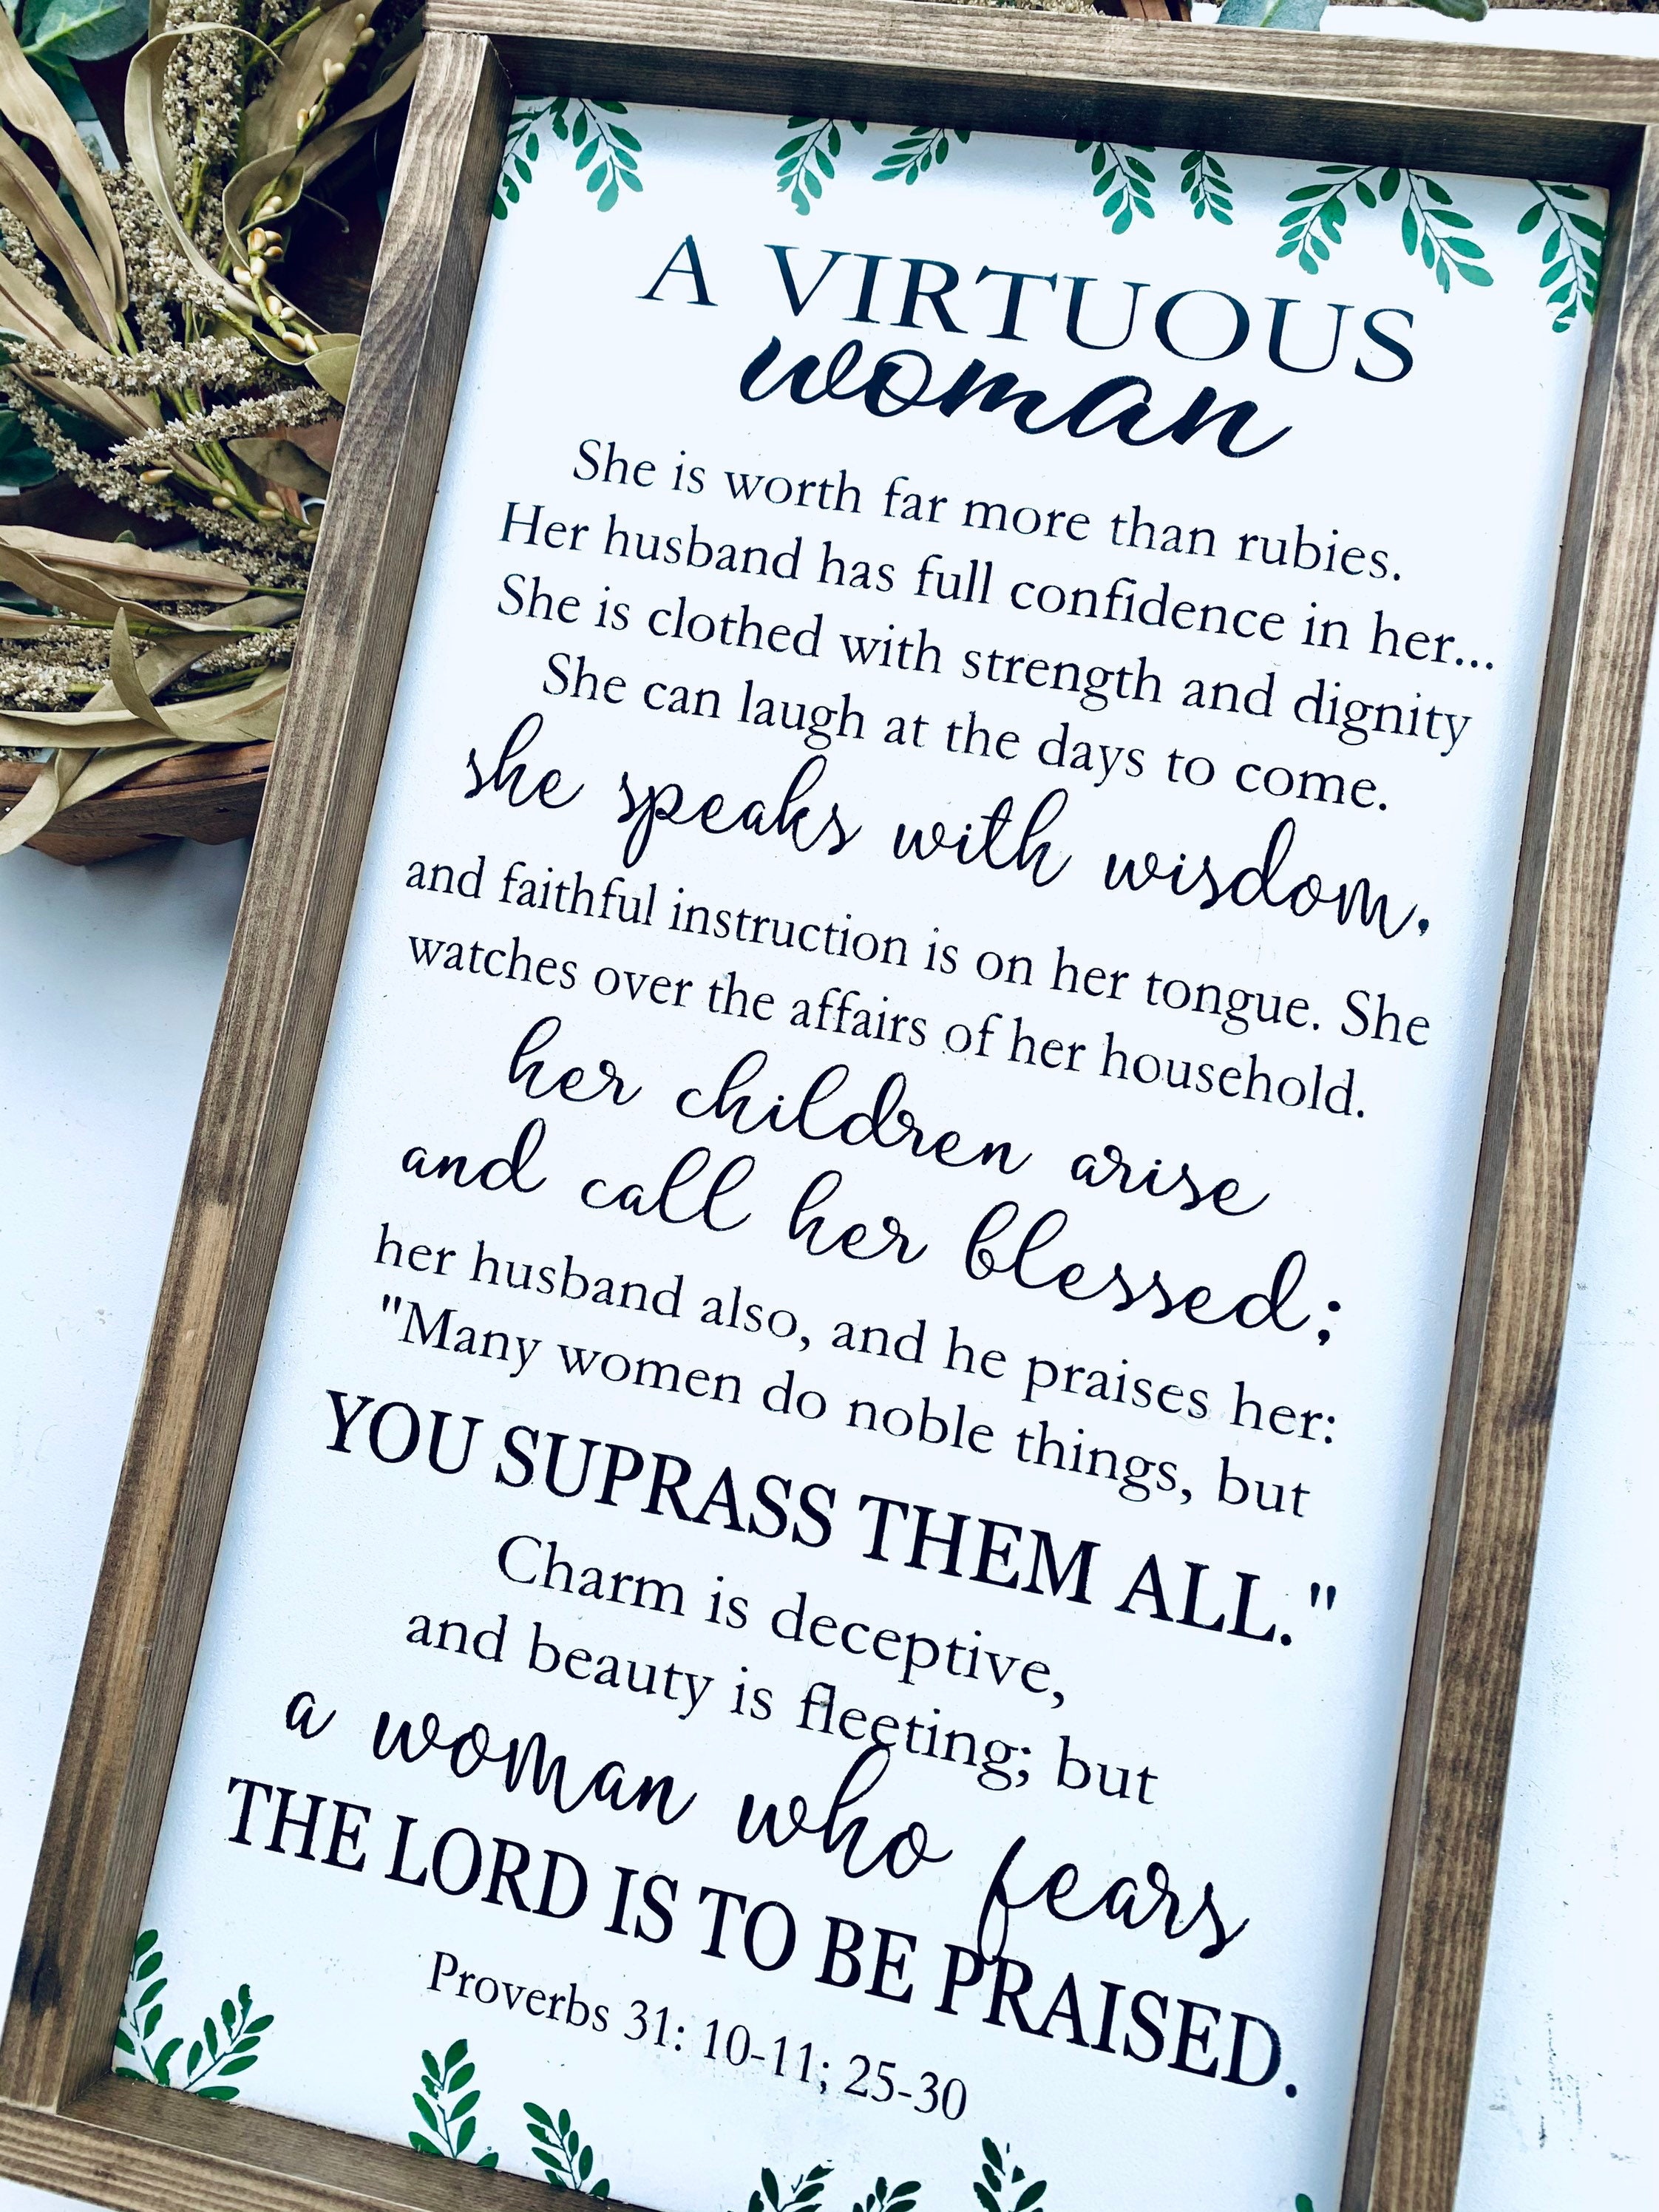 A VIRTUOUS
woman
She is worth far more than rubies.
Her husband has full confidence in her...
She is clothed with strength and dignity
She can laugh at the days to come.
she speaks with wisdom,
and faithful instruction is on her tongue. She
watches over the affairs of her household.
her children arise
and call her blessed;
her husband also, and he praises her:
"Many women do noble things, but
YOU SUPRASS THEM ALL."
Charm is deceptive,
and beauty is fleeting; but
a woman who fears
THE LORD IS TO BE PRAISED.
Proverbs 31: 10-11; 25-30